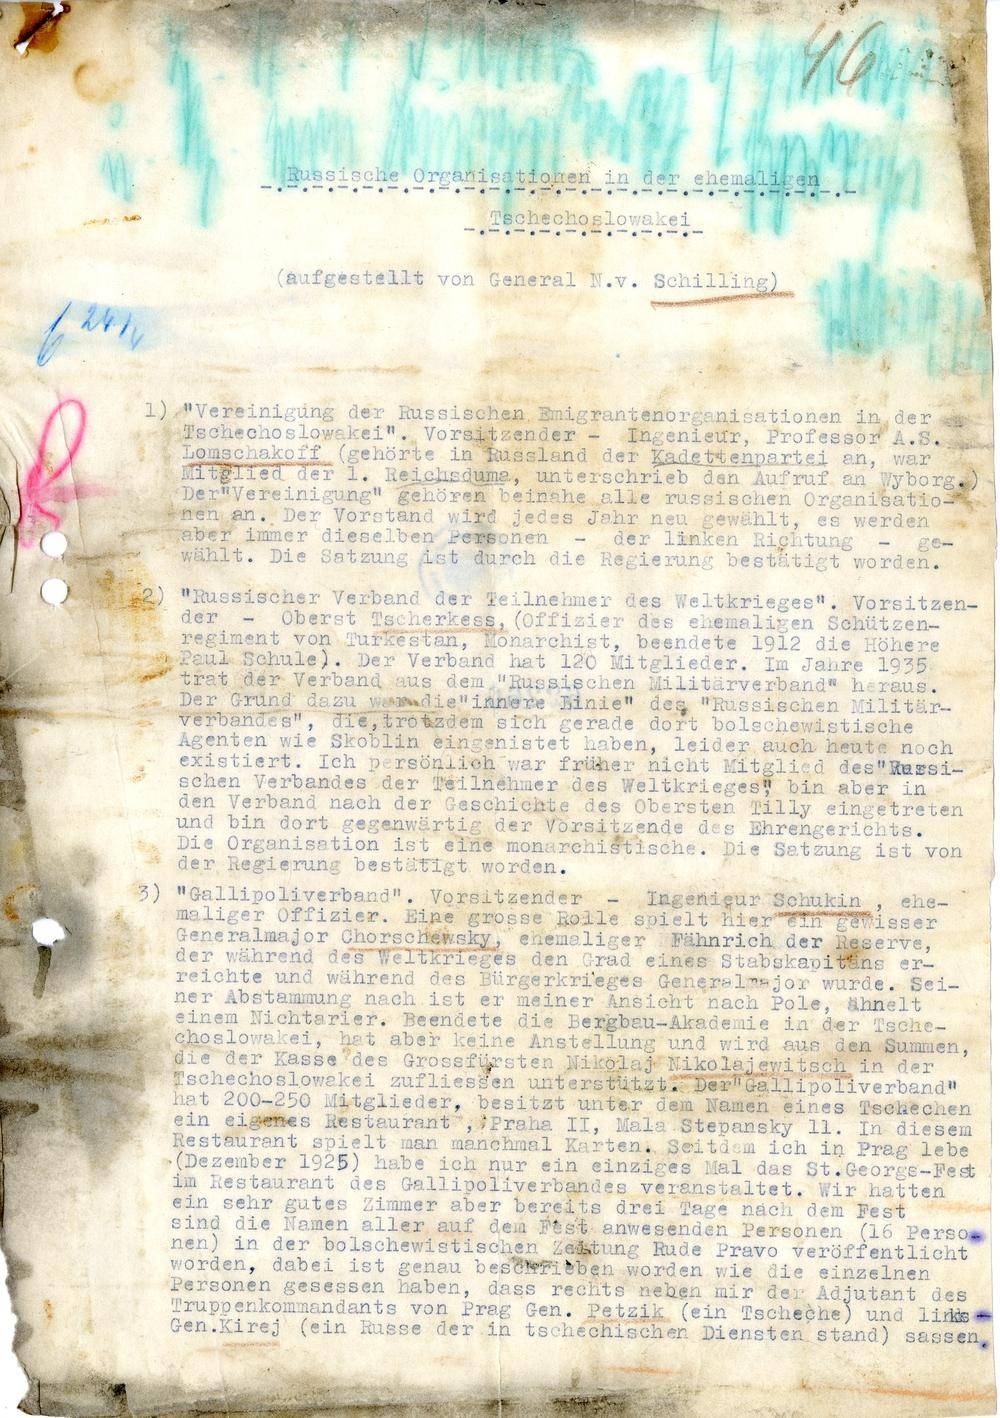 46
Russische Organisationen in der ehemaligen
Tschechoslowakei
(aufgestellt von General N.v. Schilling)
1) "Vereinigung der Russischen Emigrantenorganisationen in der
Tschechoslowakei". Vorsitzender - Ingenieur, Professor A.S.
Lomschakoff (gehörte in Russland der Kadettenpartei an, war
Mitglied der 1. Reichsduma, unterschrieb den Aufruf an Wyborg.)
Der"Vereinigung" gehören beinahe alle russischen Organisatio-
nen an. Der Vorstand wird jedes Jahr neu gewählt, es werden
aber immer dieselben Personen - der linken Richtung - ge-
wählt. Die Satzung ist durch die Regierung bestätigt worden.
2) "Russischer Verband der Teilnehmer des Weltkrieges". Vorsitzen-
der - Oberst Tscherkess, (Offizier des ehemaligen Schützen-
regiment von Turkestan, Monarchist, beendete 1912 die Höhere
Paul Schule). Der Verband hat 120 Mitglieder. Im Jahre 1935
trat der Verband aus dem "Russischen Militärverband" heraus.
Der Grund dazu war die"innere Linie" des "Russischen Militär-
verbandes", die,trotzdem sich gerade dort bolschewistische
Agenten wie Skoblin eingenistet haben, leider auch heute noch
existiert. Ich persönlich war früher nicht Mitglied des"Russi-
schen Verbandes der Teilnehmer des Weltkrieges", bin aber in
den Verband nach der Geschichte des Obersten Tilly eingetreten
und bin dort gegenwärtig der Vorsitzende des Ehrengerichts.
Die Organisation ist eine monarchistische. Die Satzung ist von
der Regierung bestätigt worden.
3) "Gallipoliverband". Vorsitzender - Ingenieur Schukin , ehe-
maliger Offizier. Eine grosse Rolle spielt hier ein gewisser
Generalmajor Chorschewsky, ehemaliger Fähnrich der Reserve,
der während des Weltkrieges den Grad eines Stabskapitäns er-
reichte und während des Bürgerkrieges Generalmajor wurde. Sei-
ner Abstammung nach ist er meiner Ansicht nach Pole, ähnelt
einem Nichtarier. Beendete die Bergbau-Akademie in der Tsche-
choslowakei, hat aber keine Anstellung und wird aus den Summen,
die der Kasse des Grossfürsten Nikolaj Nikolajewitsch in der
Tschechoslowakei zufliessen unterstützt. Der"Gallipoliverband"
hat 200-250 Mitglieder, besitzt unter dem Namen eines Tschechen
ein eigenes Restaurant , Praha II, Mala Stepansky 11. In diesem
Restaurant spielt man manchmal Karten. Seitdem ich in Prag lebe
(Dezember 1925) habe ich nur ein einziges Mal das St.Georgs-Fest
im Restaurant des Gallipoliverbandes veranstaltet. Wir hatten
ein sehr gutes Zimmer aber bereits drei Tage nach dem Fest
sind die Namen aller auf dem Fest anwesenden Personen (16 Perso-
nen) in der bolschewistischen Zeitung Rude Pravo veröffentlicht
worden, dabei ist genau beschrieben worden wie die einzelnen
Personen gesessen haben, dass rechts neben mir der Adjutant des
Truppenkommandants von Prag Gen. Petzik (ein Tscheche) und links
Gen.Kirej (ein Russe der in tschechischen Diensten stand) sassen